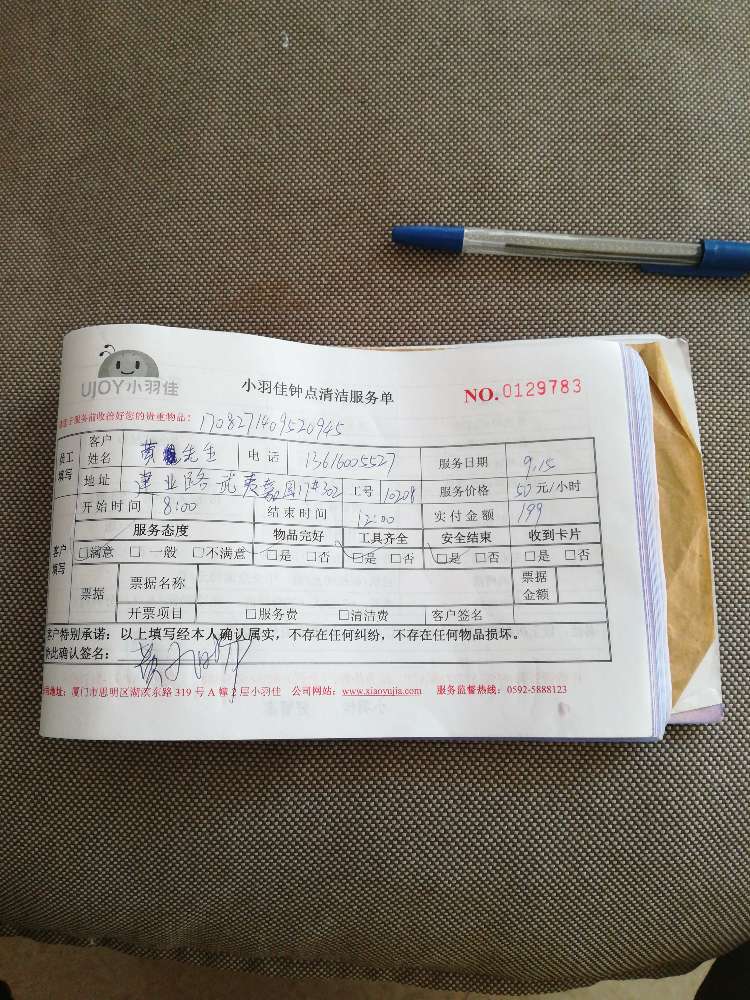 UJOY小羽佳
小羽佳钟点清洁服务单
NO.0129783
于服务前收拾好您的贵重物品: 1708271409520945
员工填写
客户姓名 黄 先生 电话 13616005527 服务日期 9.15
地址 建业路武夷嘉园17#302 工号 10208 服务价格 50元/小时
开始时间 8:00 结束时间 12:00 实付金额 199
客户填写
服务态度 物品完好 工具齐全 安全结束 收到卡片
□满意 □一般 □不满意 □是 □否 □是 □否 □是 □否 □是 □否
票据 票据名称 票据金额
开票项目 □服务费 □清洁费 客户签名
客户特别承诺: 以上填写经本人确认属实,不存在任何纠纷,不存在任何物品损坏。
此确认签名:
地址: 厦门市思明区湖滨东路319号A幢2层小羽佳 公司网站: www.xiaoyujia.com 服务监督热线: 0592-5888123